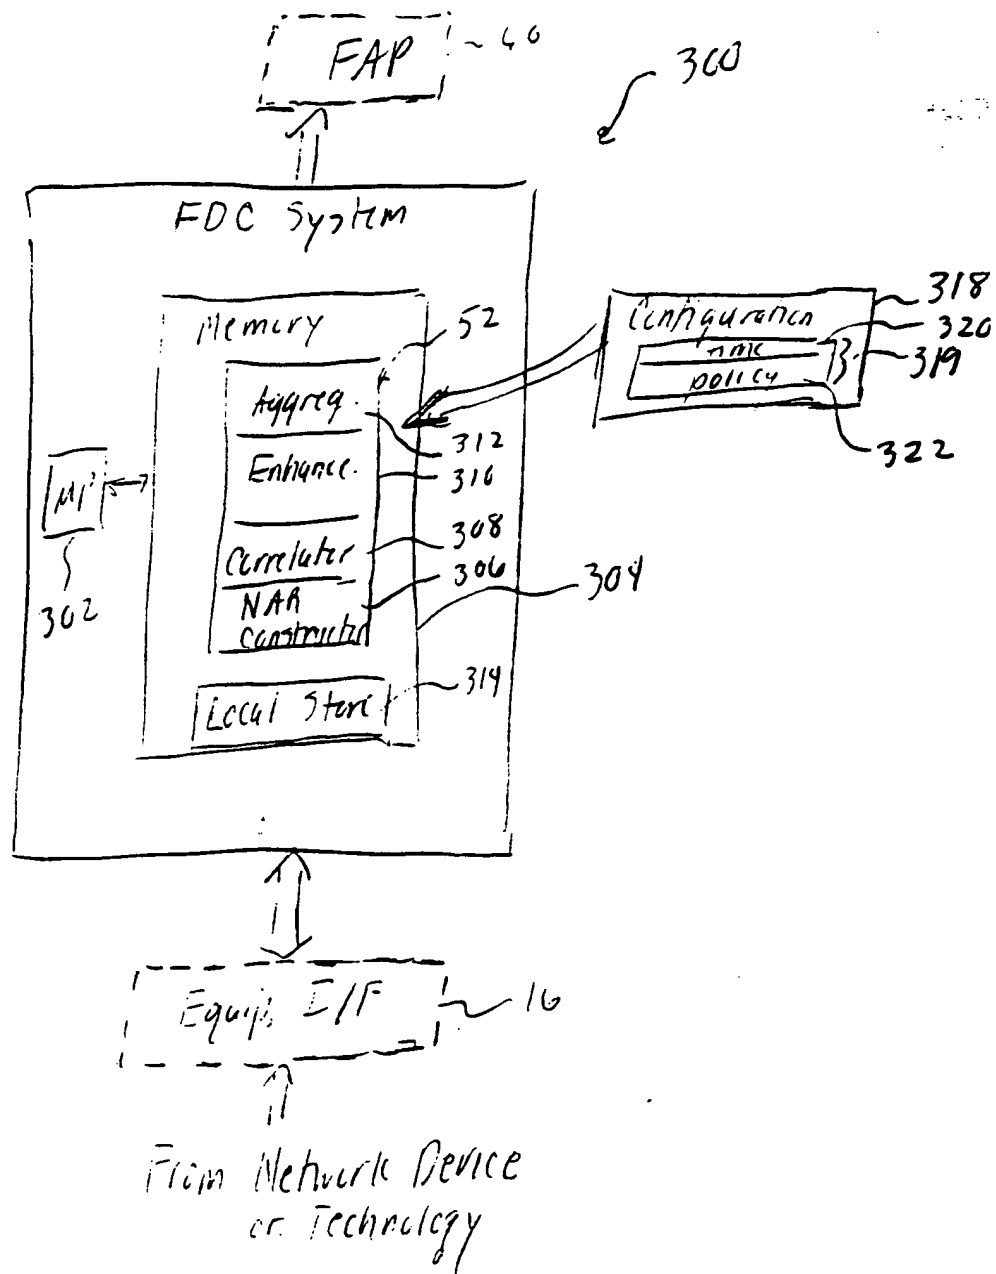 FAP
60
300
FDC System
Memory
52
Aggreg.
312
Enhance.
310
Correlator
308
NAR
constructor
306
304
Local Store
314
μP
302
Configuration
318
320
time
319
policy
322
Equip. I/F
16
From Network Device
or Technology